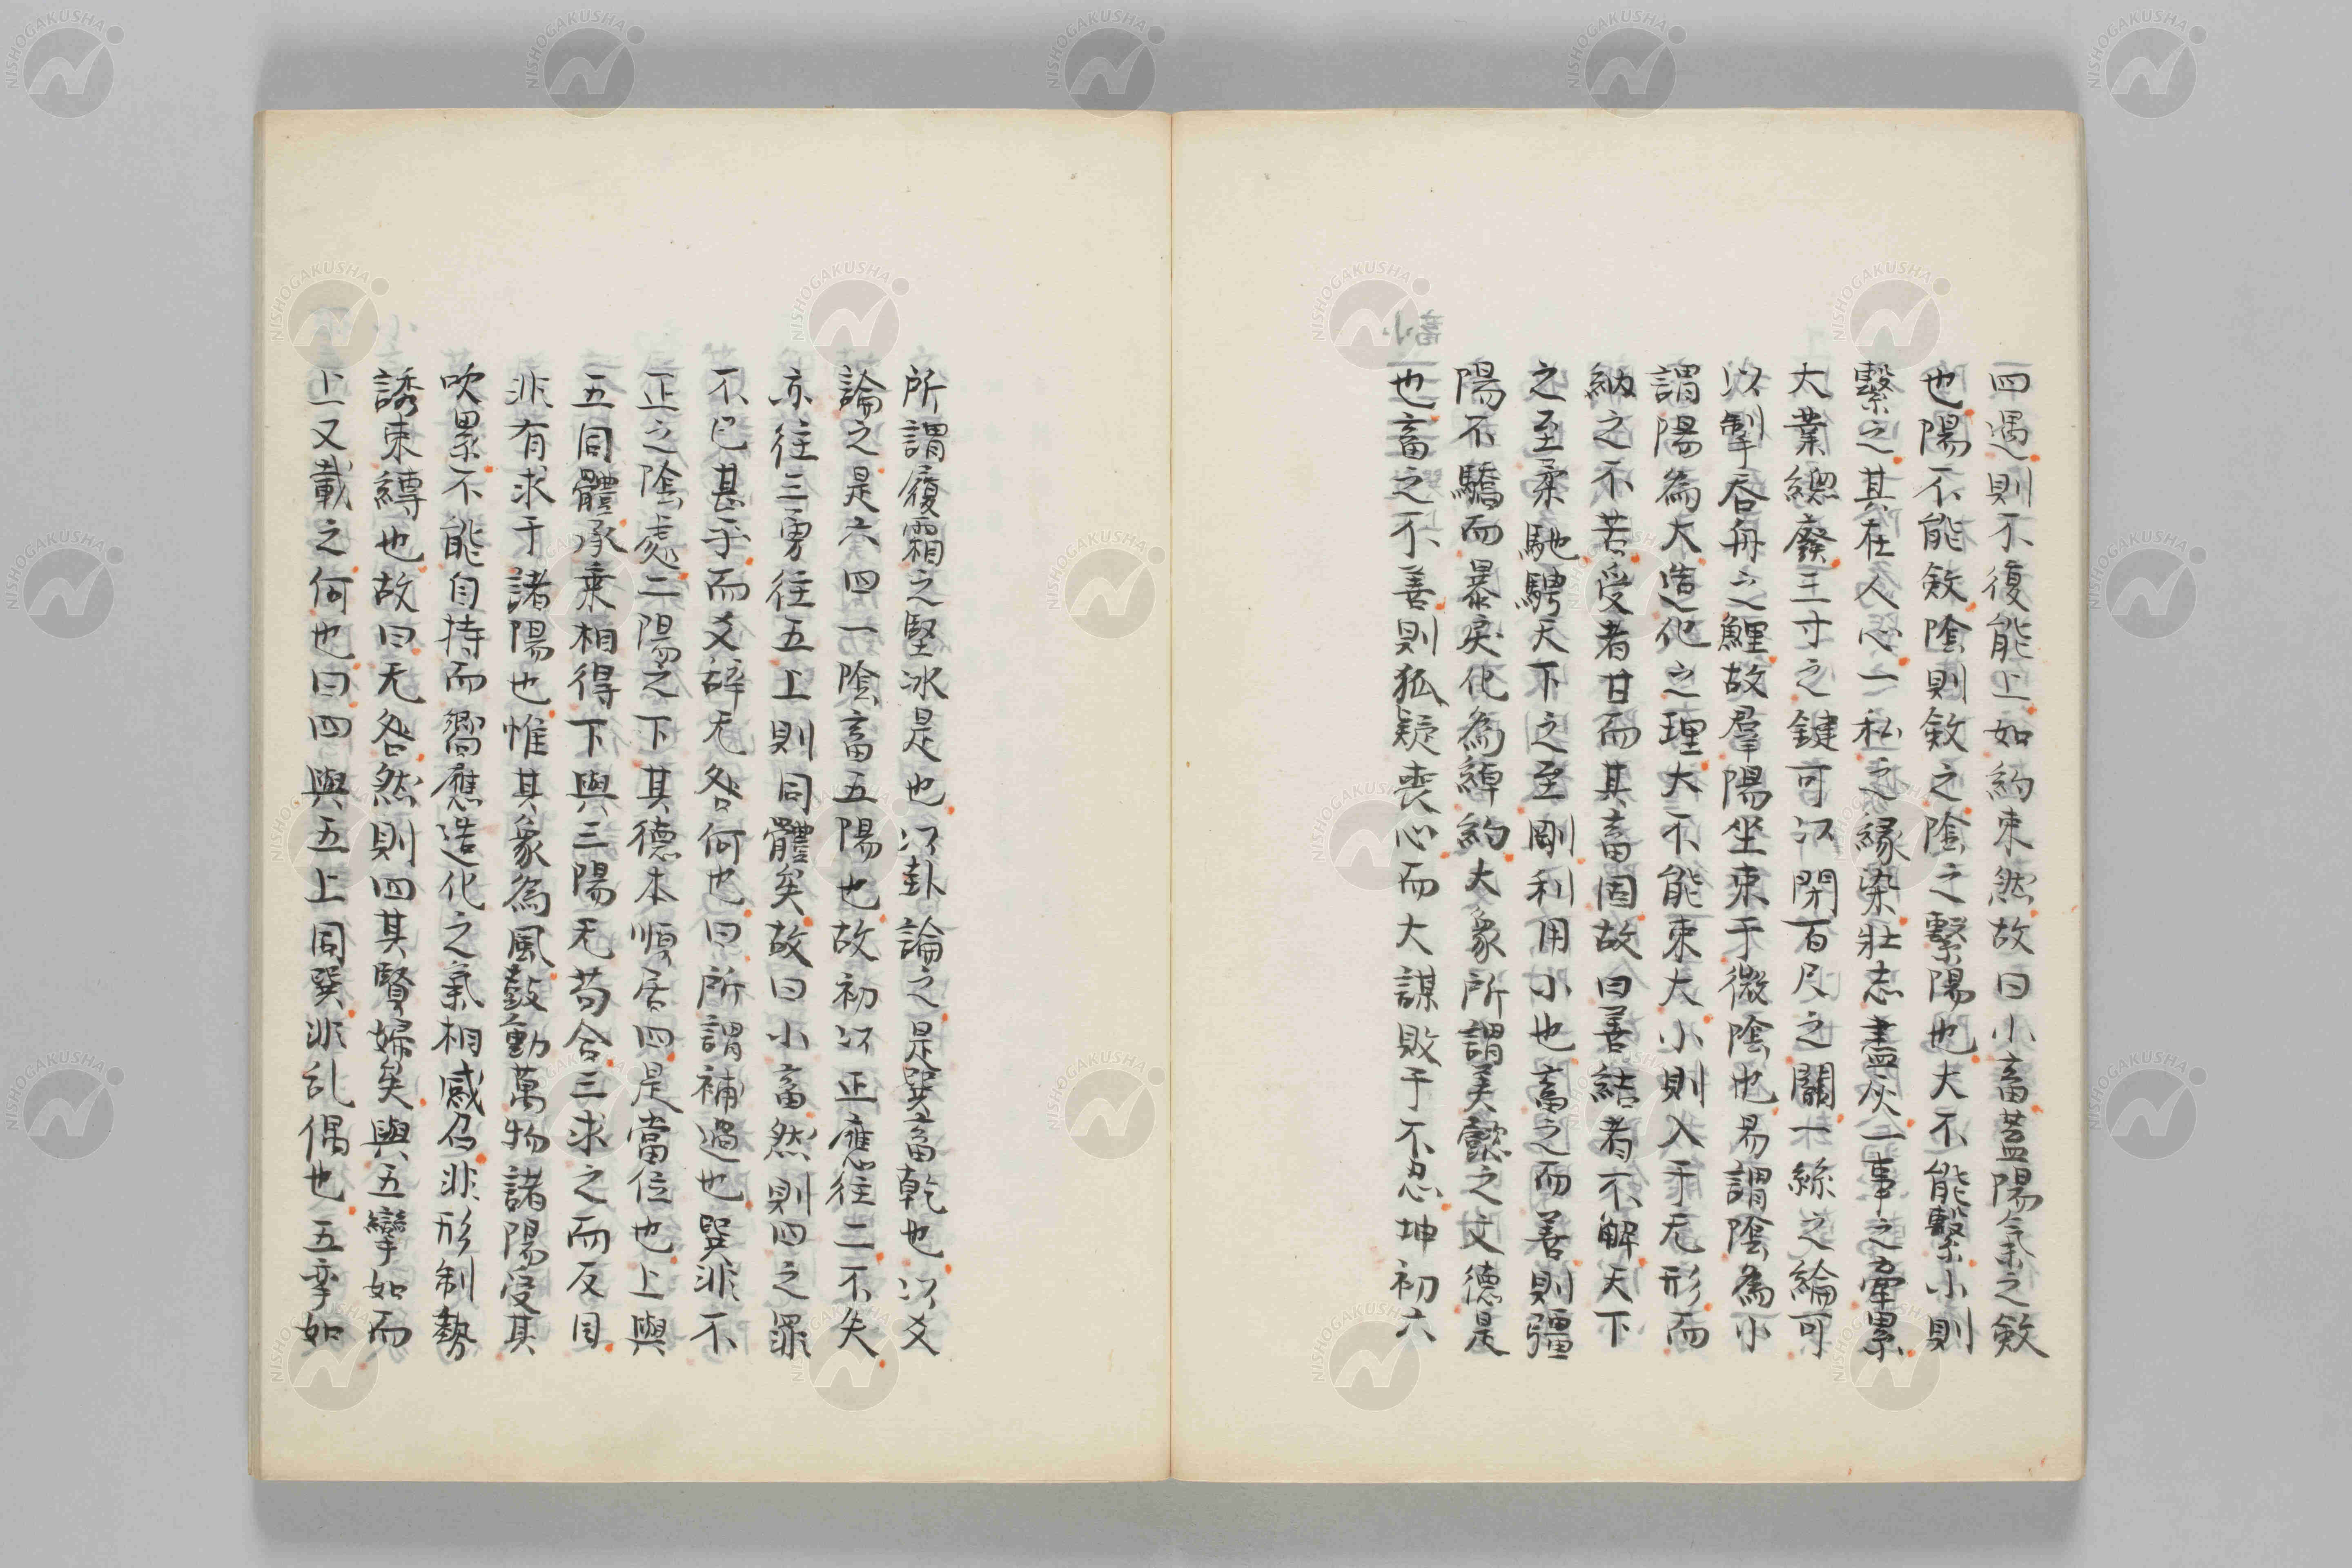 四遇則不復能上如約束然故曰小畜蓋陽氣之斂
也陽不能斂陰則斂之陰之繫陽也大不能繫小則
繫之其在人心一私之緣染壯志盡灰一事之牽累
大業總廢三寸之鍵可以閉百尺之關一絲之綸可
以掣吞舟之鯉故羣陽坐束于微陰也易謂陰為小
謂陽為大造化之理大不能束大小則入于无形而
納之不苦受者甘而其畜固故曰善結者不解天下
之至柔馳騁天下之至剛利用小也畜之而善則彊
陽不驕而暴戾化為綽約大象所謂美懿之文德是
也畜之不善則狐疑喪心而大謀敗于不忍坤初六
所謂履霜之堅冰是也以卦論之是巽畜乾也以爻
論之是六四一陰畜五陽也故初以正應往二不失
亦往三勇往五上則同體矣故曰小畜然則四之罪
不已甚乎而爻辭无咎何也曰所謂補過也巽非不
正之陰處二陽之下其德本順居四是當位也上與
五同體承乗相得下與三陽无苟合三求之而反目
非有求于諸陽也惟其象為風鼓動萬物諸陽受其
吹累不能自持而嚮應造化之氣相感召非形制勢
誘束縛也故曰无咎然則四其賢婦矣與五攣如而
上又載之何也曰四與五上同巽非乱偶也五孪如
NISHOGAKUSHA